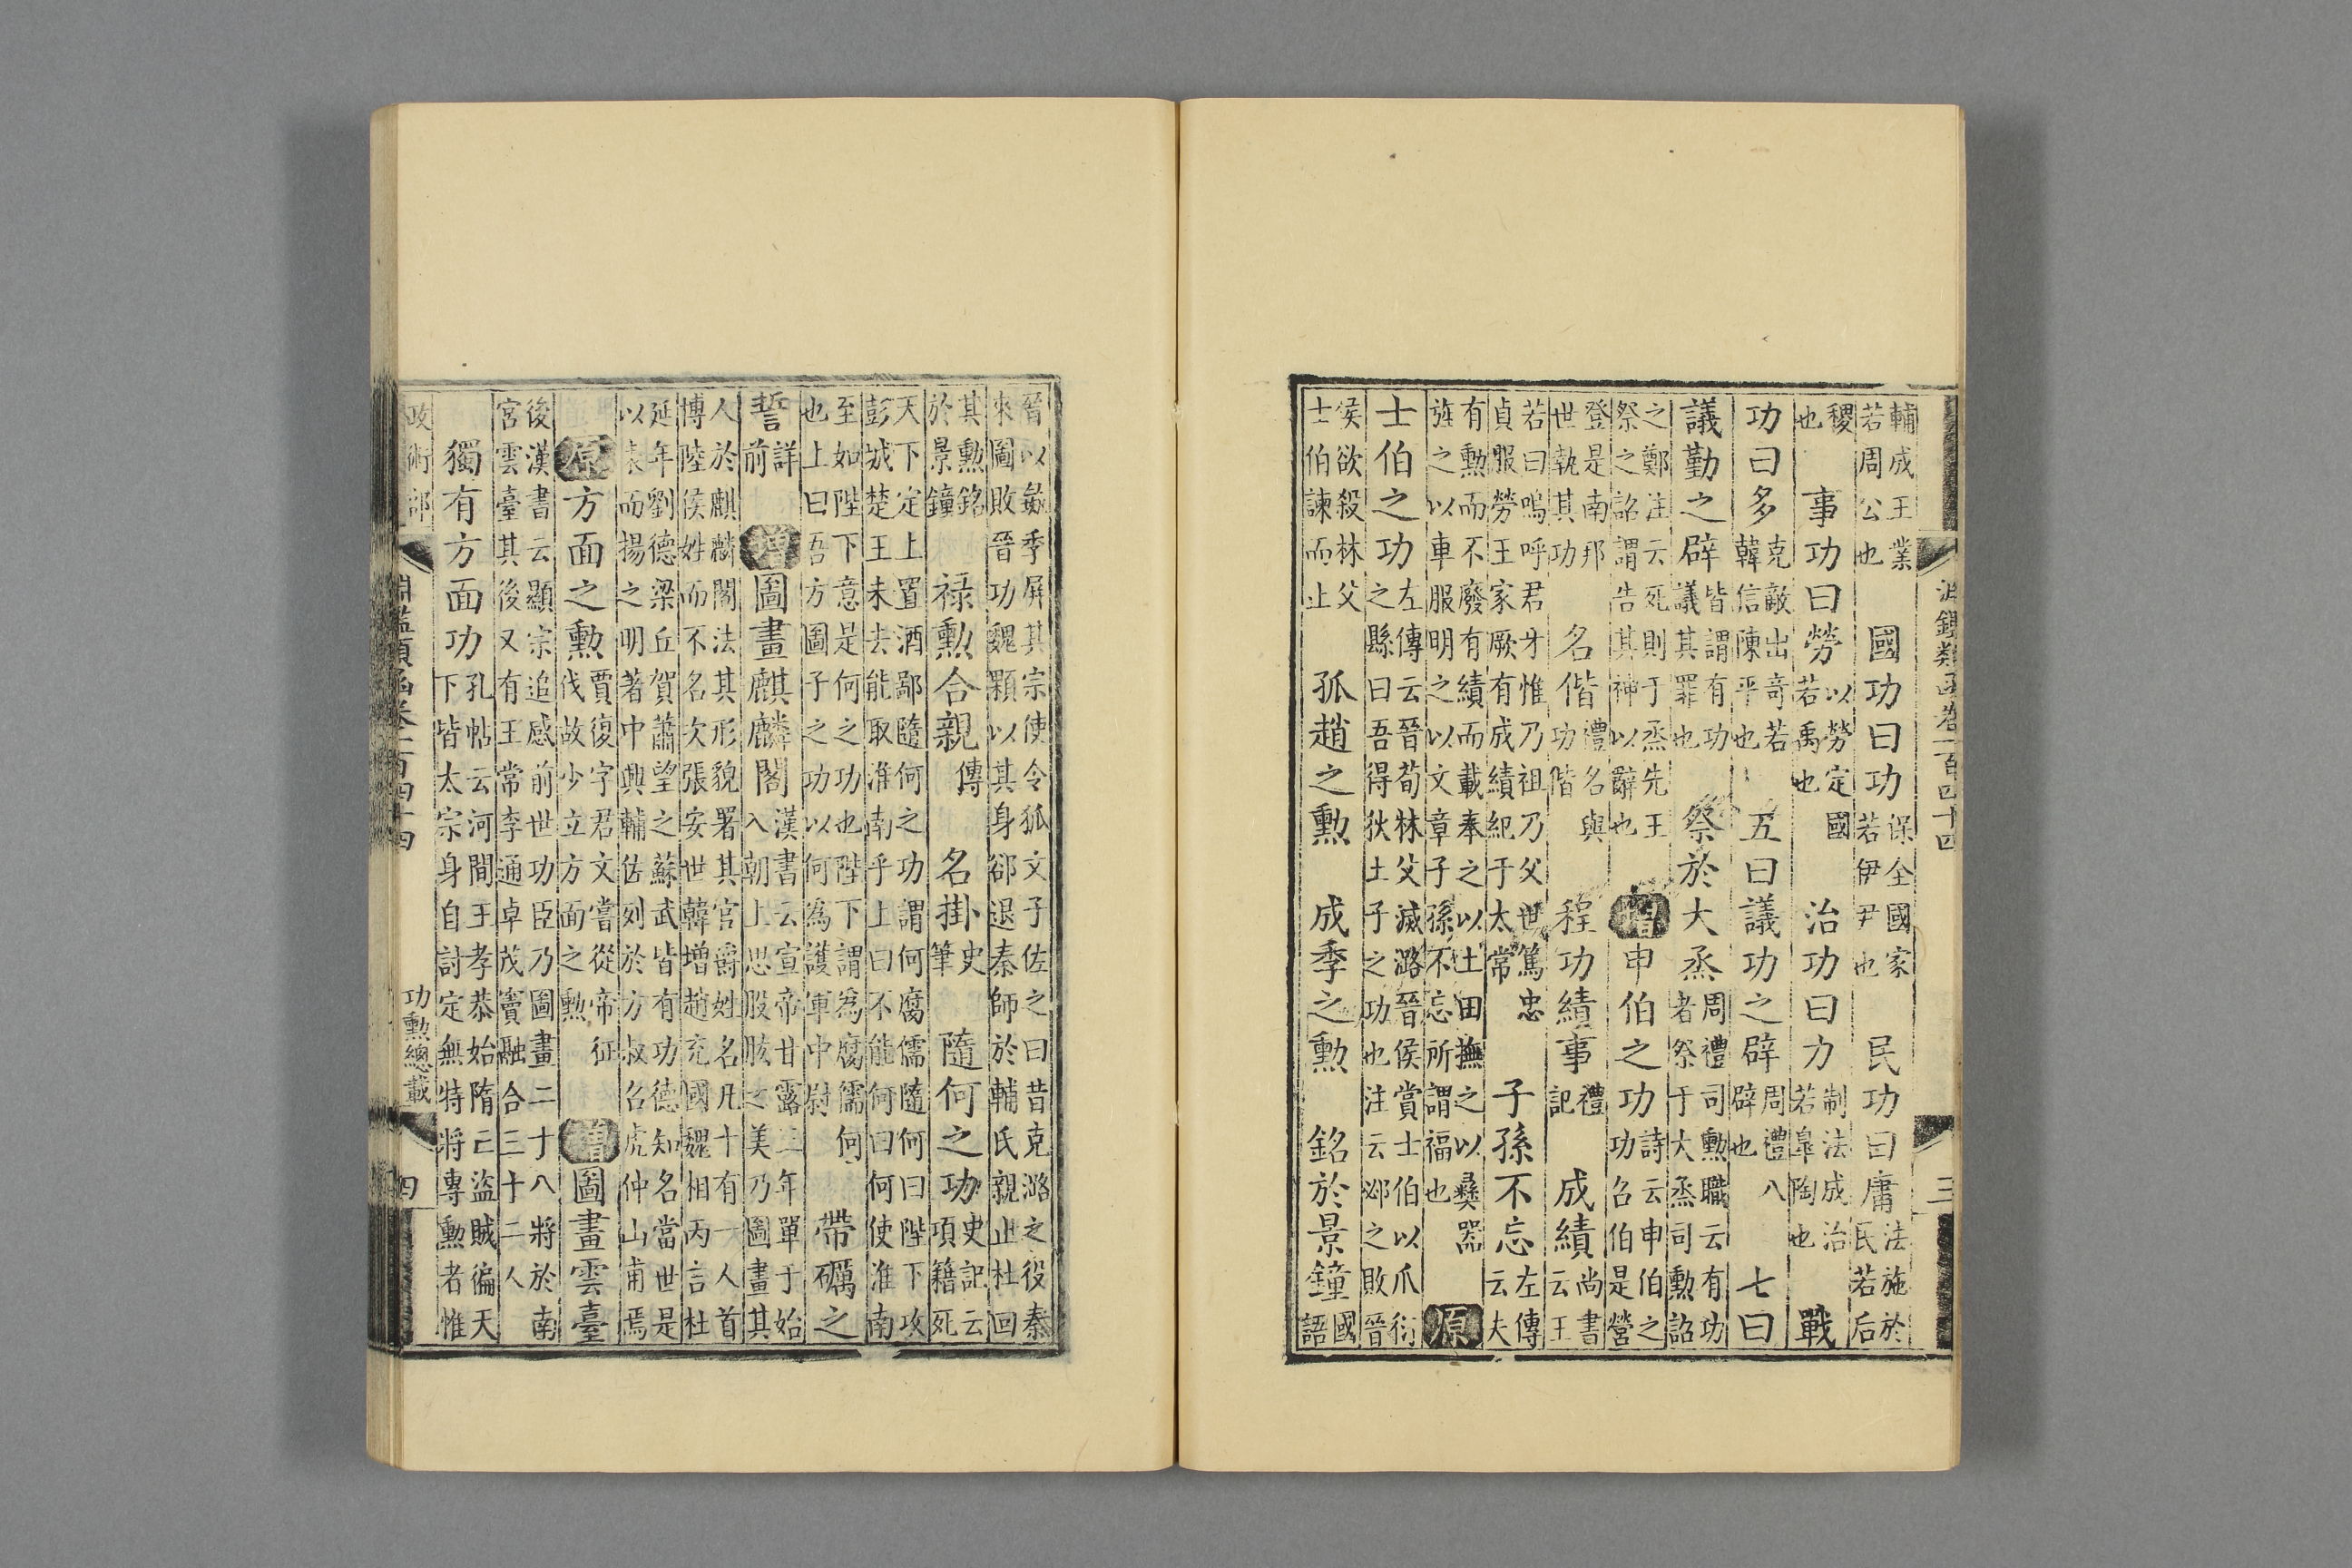 淵鑑類函卷一百四十四 三
輔成王業若周公也 國功曰功保全國家若伊尹也 民功曰庸法施於民若后
稷也 事功曰勞以勞定國若禹也 治功曰力制法成治若臯陶也 戰
功曰多克敵出奇若韓信陳平也 五曰議功之辟周禮八辟也 七曰
議勤之辟皆謂有功議其罪也 祭於大烝周禮司勲職云有功者祭于大烝司勲詔
之鄭注云死則于烝先王祭之詔謂告其神以辭也 增申伯之功詩云申伯之功召伯是營
登是南邦世執其功 名偕禮名與功偕 程功績事禮記 成績尚書云王
若曰嗚呼君牙惟乃祖乃父世篤忠貞服勞王家厥有成績紀于太常 子孫不忘左傳云夫
有勲而不廢有績而載奉之以土田撫之以彝器旌之以車服明之以文章子孫不忘所謂福也 原
士伯之功左傳云晉荀林父滅潞晉侯賞士伯以爪衍之縣曰吾得狄土子之功也注云邲之敗晉
侯欲殺林父士伯諫而止 孤趙之勲 成季之勲 銘於景鐘國語
晉以敏季屏其宗使令狐文子佐之曰昔克潞之役秦來圖敗晉功魏顆以其身郤退秦師於輔氏親止杜回
其勲銘於景鐘 祿勲合親傳 名掛史筆 隨何之功史記云項籍死
天下定上置酒鄙隨何之功謂何腐儒隨何曰陛下攻彭城楚王未去能取淮南乎上曰不能何曰何使淮南
至如陛下意是何之功也陛下謂為腐儒何也上曰吾方圖子之功以何為護軍中尉 帶礪之
誓詳前 增圖畫麒麟閣漢書云宣帝甘露三年單于始入朝上思股肱之美乃圖畫其
人於麒麟閣法其形貌署其官爵姓名凡十有一人首博陸侯姓而不名次張安世韓增趙充國魏相丙吉杜
延年劉德梁丘賀蕭望之蘇武皆有功德知名當世是以表而揚之明著中興輔佐列於方叔召虎仲山甫焉
原方面之勲賈復字君文嘗從帝征伐故少立方面之勲 增圖畫雲臺
後漢書云顯宗追感前世功臣乃圖畫二十八將於南宮雲臺其後又有王常李通卓茂竇融合三十二人
獨有方面功孔帖云河間王孝恭始隋亡盜賊徧天下皆太宗身自討定無特將專勲者惟
政術部 淵鑑類函卷一百四十四 功勲總載 四